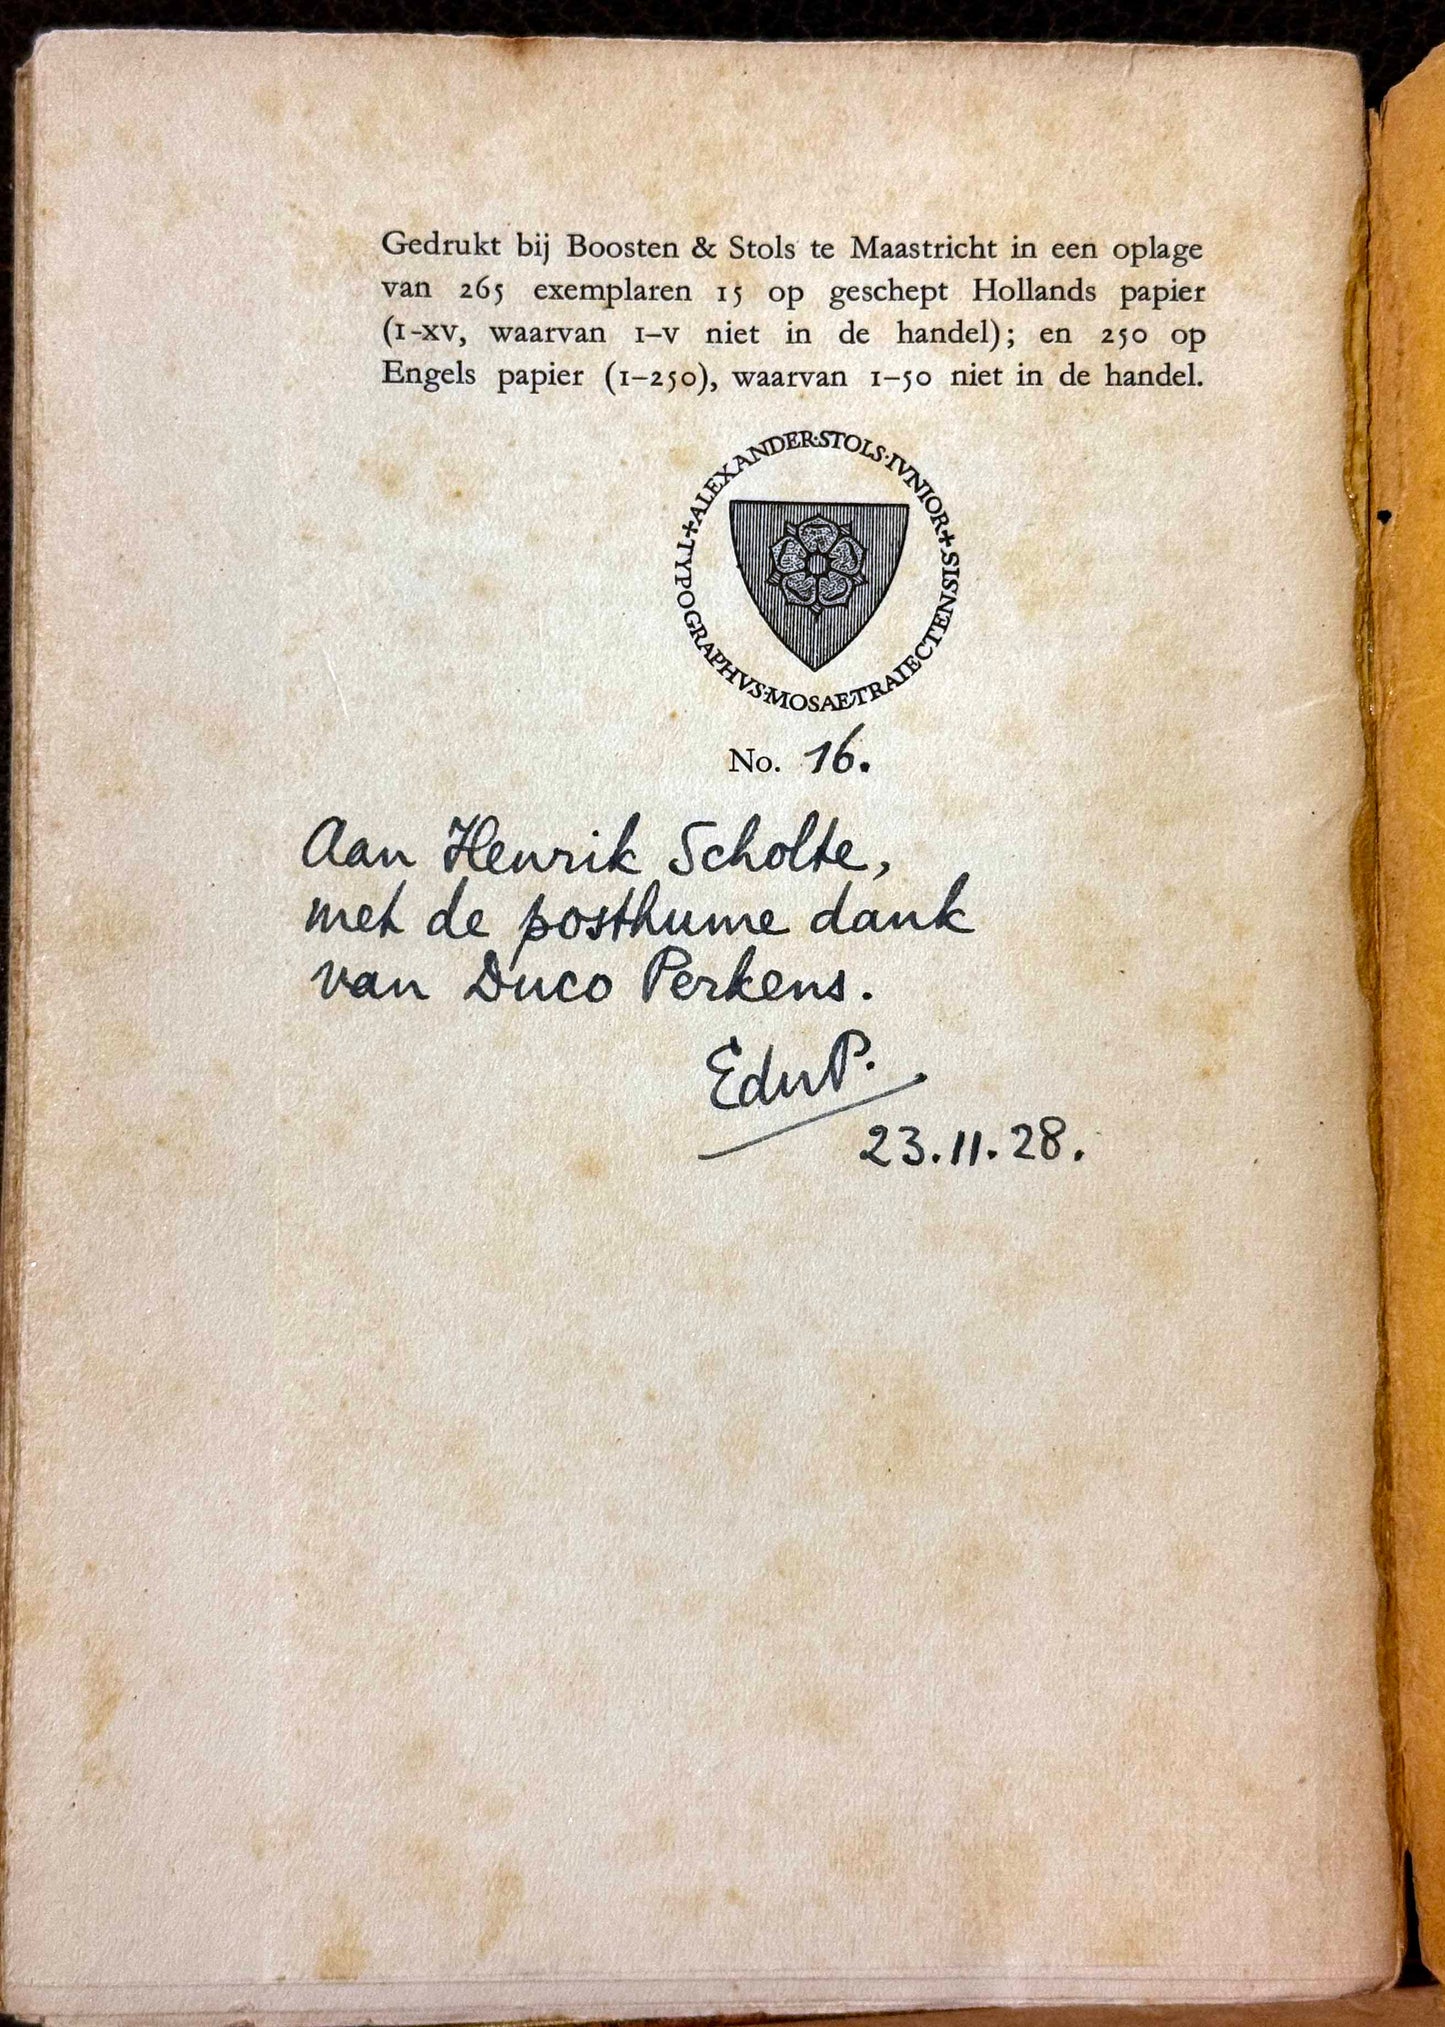 Gedrukt bij Boosten & Stols te Maastricht in een oplage
van 265 exemplaren 15 op geschept Hollands papier
(I-XV, waarvan I–V niet in de handel); en 250 op
Engels papier (1–250), waarvan 1–50 niet in de handel.
+ALEXANDER·STOLS·IVNIOR+SISSNETCEIARTEASOM·SVHPARGOPYT
No. 16.
Aan Henrik Scholte,
met de posthume dank
van Duco Perkens.
EduP.
23.11.28.